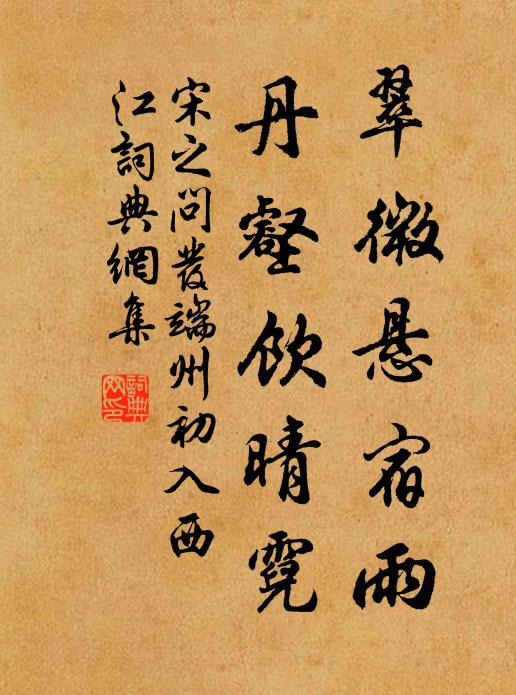 翠微悬宿雨
丹壑饮晴霓
宋之问发端州初入西
江词典網集
詞典网印